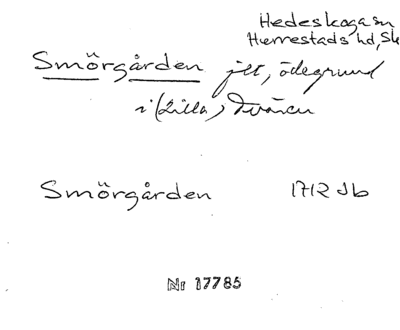 Hedeskoga sn
Herrestads hd, Sk
Smörgården jlt, ödegrund
i (Lilla) Tvären
Smörgården 1712 Jb
Nr 17785